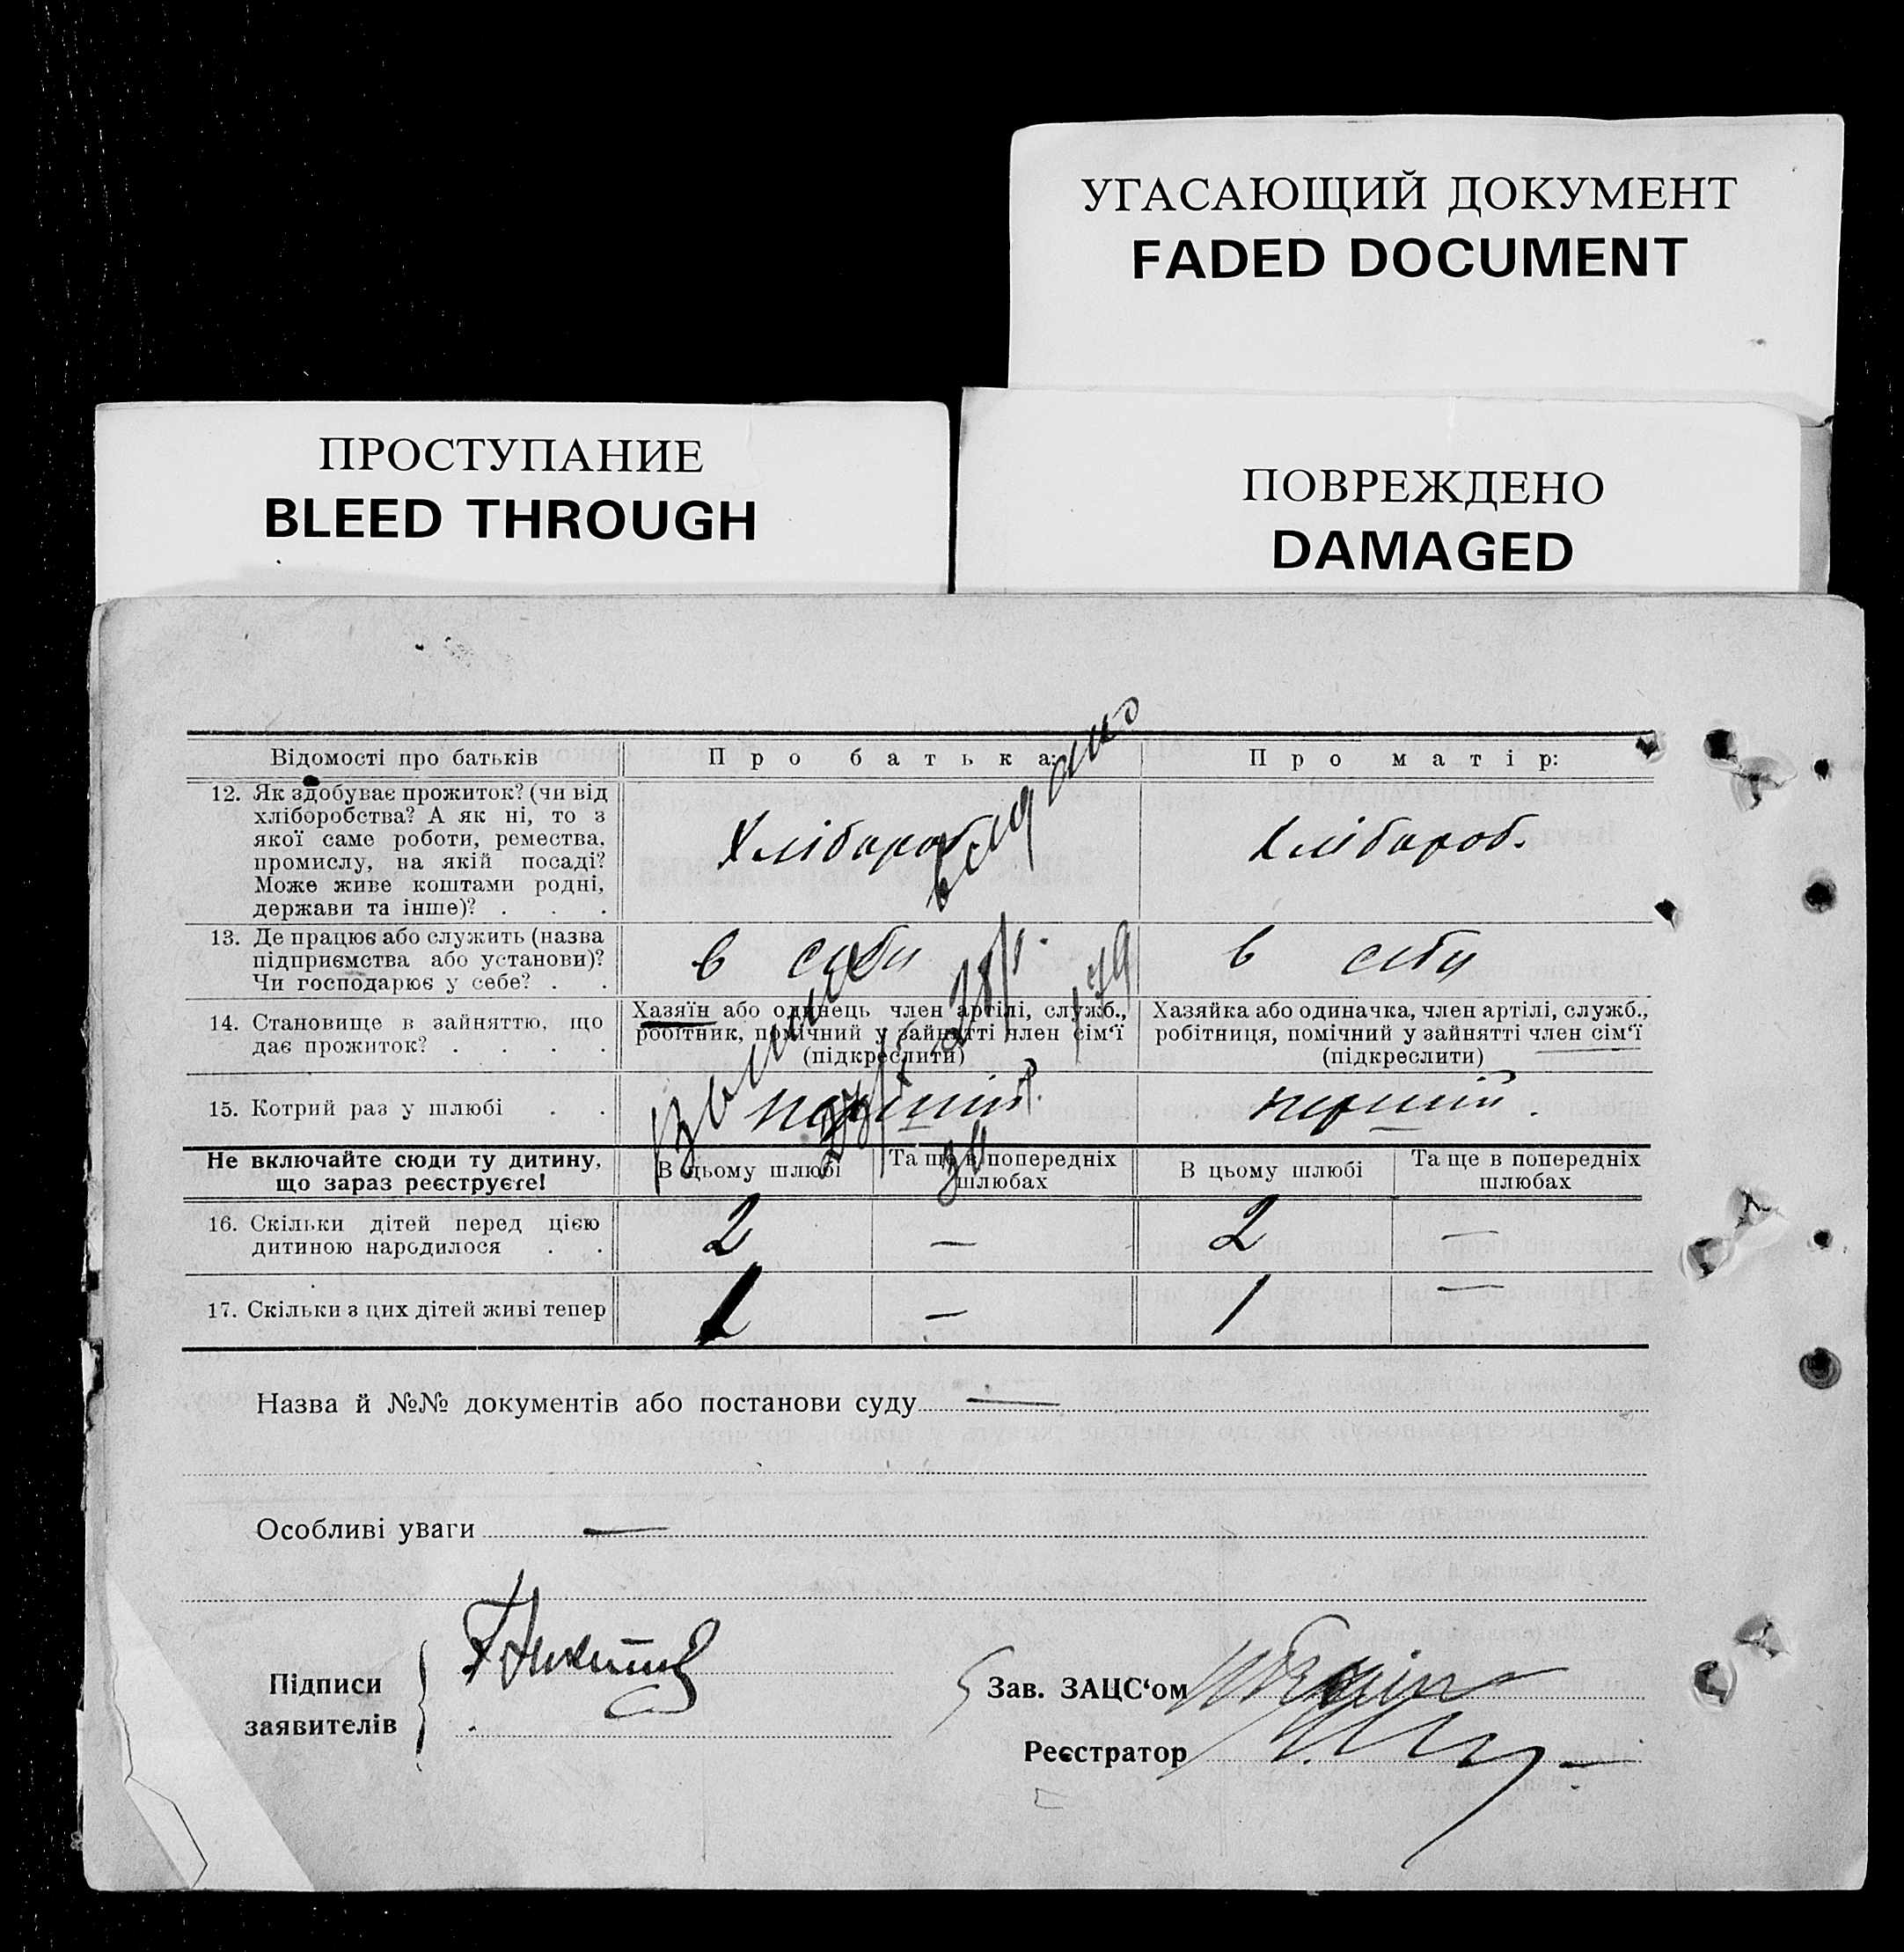 УГАСАЮЩИЙ ДОКУМЕНТ
FADED DOCUMENT
ПРОСТУПАНИЕ
BLEED THROUGH
ПОВРЕЖДЕНО
DAMAGED
Відомості про батьків
Про батька:
Про матір:
12. Як здобуває прожиток? (чи від
хліборобства? А як ні, то з
якої саме роботи, ремества,
промислу, на якій посаді?
Може живе коштами родні,
держави та інше)? . . .
Хлібороб
Хлібороб.
13. Де працює або служить (назва
підприємства або установи)?
Чи господарює у себе? . .
в себи
в себи
14. Становище в зайняттю, що
дає прожиток? . . . .
Хазяїн або одинець член артілі, служб.,
робітник, помічний у зайнятті член сім‘ї
(підкреслити)
Хазяйка або одиначка, член артілі, служб.,
робітниця, помічний у зайнятті член сім‘ї
(підкреслити)
15. Котрий раз у шлюбі . .
перший
перший.
Не включайте сюди ту дитину,
що зараз реєструєте!
В цьому шлюбі
Та ще в попередніх
шлюбах
В цьому шлюбі
Та ще в попередніх
шлюбах
16. Скільки дітей перед цією
дитиною народилося . .
2
—
2
—
17. Скільки з цих дітей живі тепер
1
—
1
—
Назва й №№ документів або постанови суду —
Особливі уваги —
Підписи
заявителів
Зав. ЗАЦС‘ом
Реєстратор